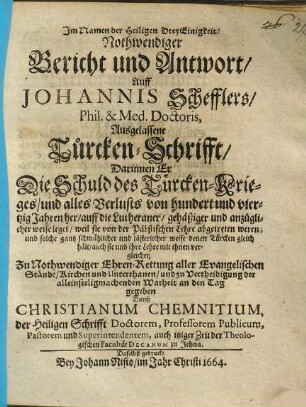 Im Namen der Heiligen DreyEinigkeit/
Nothwendiger
Bericht und Antwort/
Auff
JOHANNIS Schefflers/
Phil. & Med. Doctoris,
Ausgelassene
Türcken-Schrifft/
Darinnen Er
Die Schuld des Türcken-Krie-
ges/und alles Verlusts von hundert und vier-
tzig Jahren her/auff die Lutheraner/ gehäßiger und anzügli-
cher weise leget/ weil sie von der Päbstischen Lehre abgetreten weren;
und solche gantz schmählicher und lästerlicher weise denen Türcken gleich
hält/auch sie und ihre Lehre mit ihnen ver-
gleichet;
Zu Nothwendiger Ehren-Rettung aller Evangelischen
Stände/Kirchen und Unterthanen/ und zu Vertheidigung der
alleinseeligmachenden Warheit an den Tag
gegeben
Durch
CHRISTIANUM CHEMNITIUM,
der Heiligen Schrifft Doctorem, Professorem Publicum,
Pastorem und Superintendentem, auch itziger Zeit der Theolo-
gischen Facultät DECANUM zu Jehna.
Daselbst gedruckt
Bey Johann Nisio/im Jahr Christi 1664.